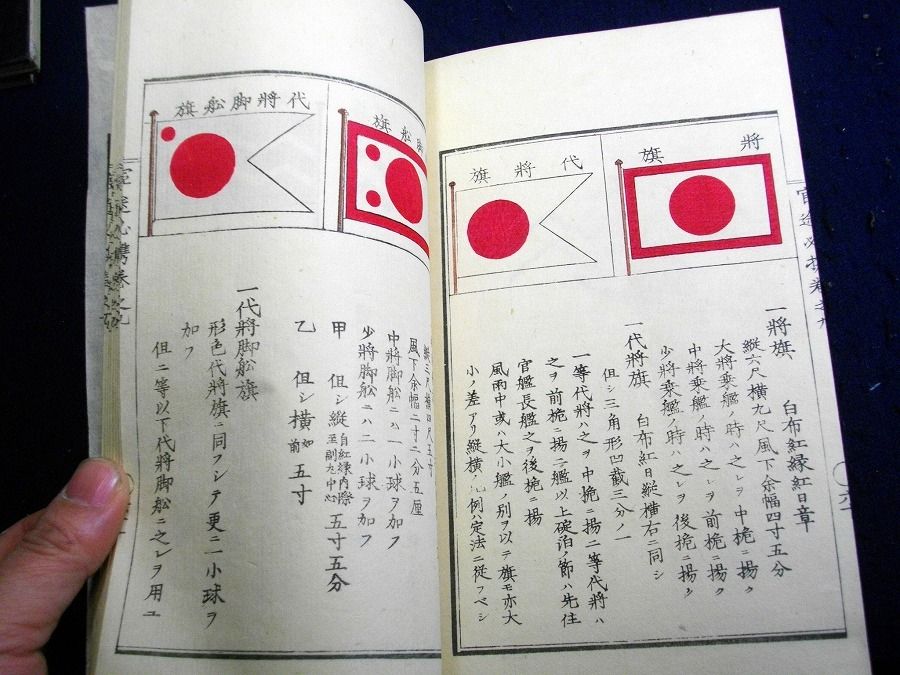 將旗
代將旗
一將旗 白布紅縁紅日章
縱六尺横九尺風下余幅四寸五分
大將乗艦ノ時ハ之レヲ中桅ニ揚ク
中將乗艦ノ時ハ之レヲ前桅ニ揚ク
少將乗艦ノ時ハ之レヲ後桅ニ揚ク
一代將旗 白布紅日縱横右ニ同シ
但シ三角形凹截三分ノ一
一等代將ハ之ヲ中桅ニ揚ニ等代將ハ
之ヲ前桅ニ揚二艦以上碇泊ノ節ハ先任
官艦長艦之ヲ後桅ニ揚
風雨中或ハ大小艦ノ別ヲ以テ旗モ亦大
小ノ差アリ縱横ノ凡例ハ定法ニ從フベシ
脚舩旗
代將脚舩旗
風下余幅二寸二分五厘
中將脚舩ニハ一小球ヲ加フ
少將脚舩ニハ二小球ヲ加フ
甲 但シ縱自紅縁内際至副丸中心五寸五分
乙 但シ横如前五寸
一代將脚舩旗
形色代將旗ニ同フシテ更ニ一小球ヲ
加フ
但二等以下代將脚舩ニ之レヲ用ユ